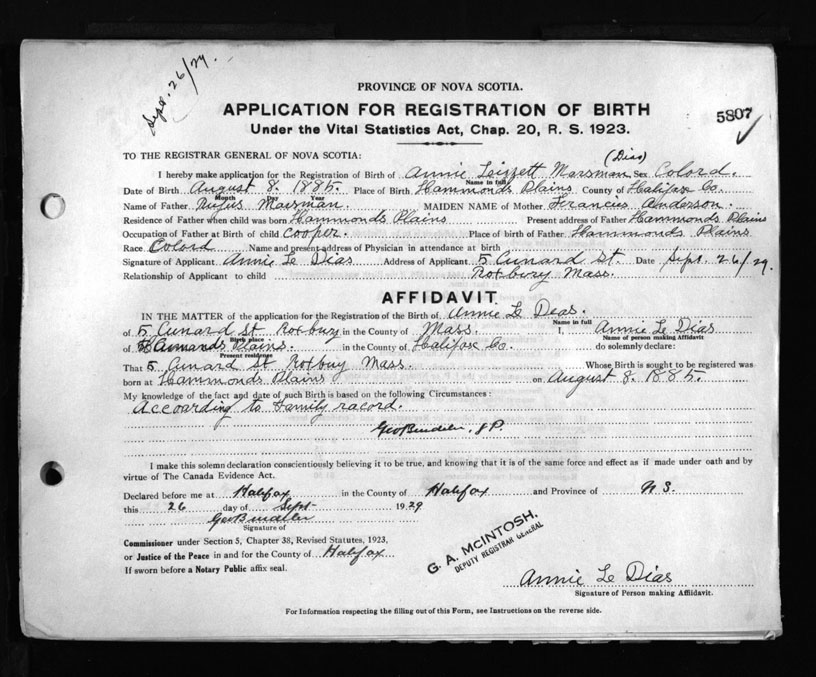 Sept. 26/29.
PROVINCE OF NOVA SCOTIA.
APPLICATION FOR REGISTRATION OF BIRTH
5807
Under the Vital Statistics Act, Chap. 20, R. S. 1923.
TO THE REGISTRAR GENERAL OF NOVA SCOTIA:
(Dias)
I hereby make application for the Registration of Birth of Annie Leizzett Marsman Sex Colord.
Name in full
Date of Birth August 8. 1885. Place of Birth Hammonds Plains County of Halifax Co.
Month Day Year
Name of Father Rufus Marsman. MAIDEN NAME of Mother Francies Anderson.
Residence of Father when child was born Hammonds Plains Present address of Father Hammonds Plains
Occupation of Father at Birth of child Cooper. Place of birth of Father Hammonds Plains
Race Colord Name and present address of Physician in attendance at birth
Signature of Applicant Annie Le Dias Address of Applicant 5 Cunard St. Date Sept. 26/29.
Relationship of Applicant to child Roxbury Mass.
AFFIDAVIT
IN THE MATTER of the application for the Registration of the Birth of Annie Le Deas.
Name in full
of 5 Cunard St Roxbury in the County of Mass. I, Annie Le Dias
Birth place Name of person making Affidavit
of Hammonds Plains. in the County of Halifax Co. do solemnly declare:
Present residence
That 5 Cunard St Roxbury Mass. Whose Birth is sought to be registered was
born at Hammonds Plains on August 8. 1885.
My knowledge of the fact and date of such Birth is based on the following Circumstances:
Accoarding to Family racord.
J.P.
I make this solemn declaration conscientiously believing it to be true, and knowing that it is of the same force and effect as if made under oath and by
virtue of The Canada Evidence Act.
Declared before me at Halifax in the County of Halifax and Province of N S.
this 26 day of Sept 1929
Signature of
Commissioner under Section 5, Chapter 38, Revised Statutes, 1923,
or Justice of the Peace in and for the County of Halifax
If sworn before a Notary Public affix seal.
G. A. McINTOSH,
DEPUTY REGISTRAR GENERAL
Annie Le Dias
Signature of Person making Affidavit.
For Information respecting the filling out of this Form, see Instructions on the reverse side.